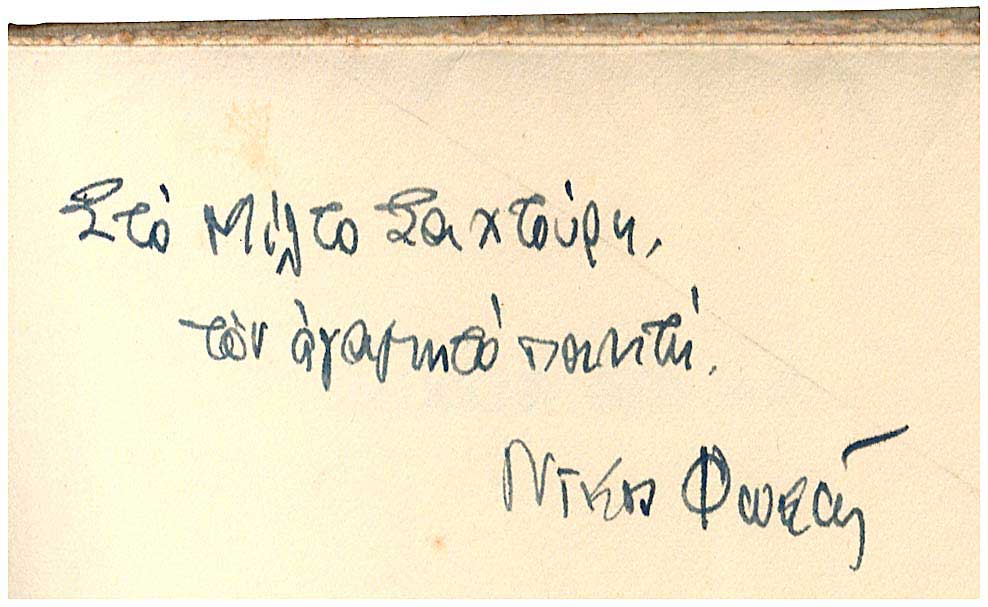 Στὸ Μίλτο Σαχτούρη,
τὸν ἀγαπητό ποιητή.
Νίκος Φωκᾶς